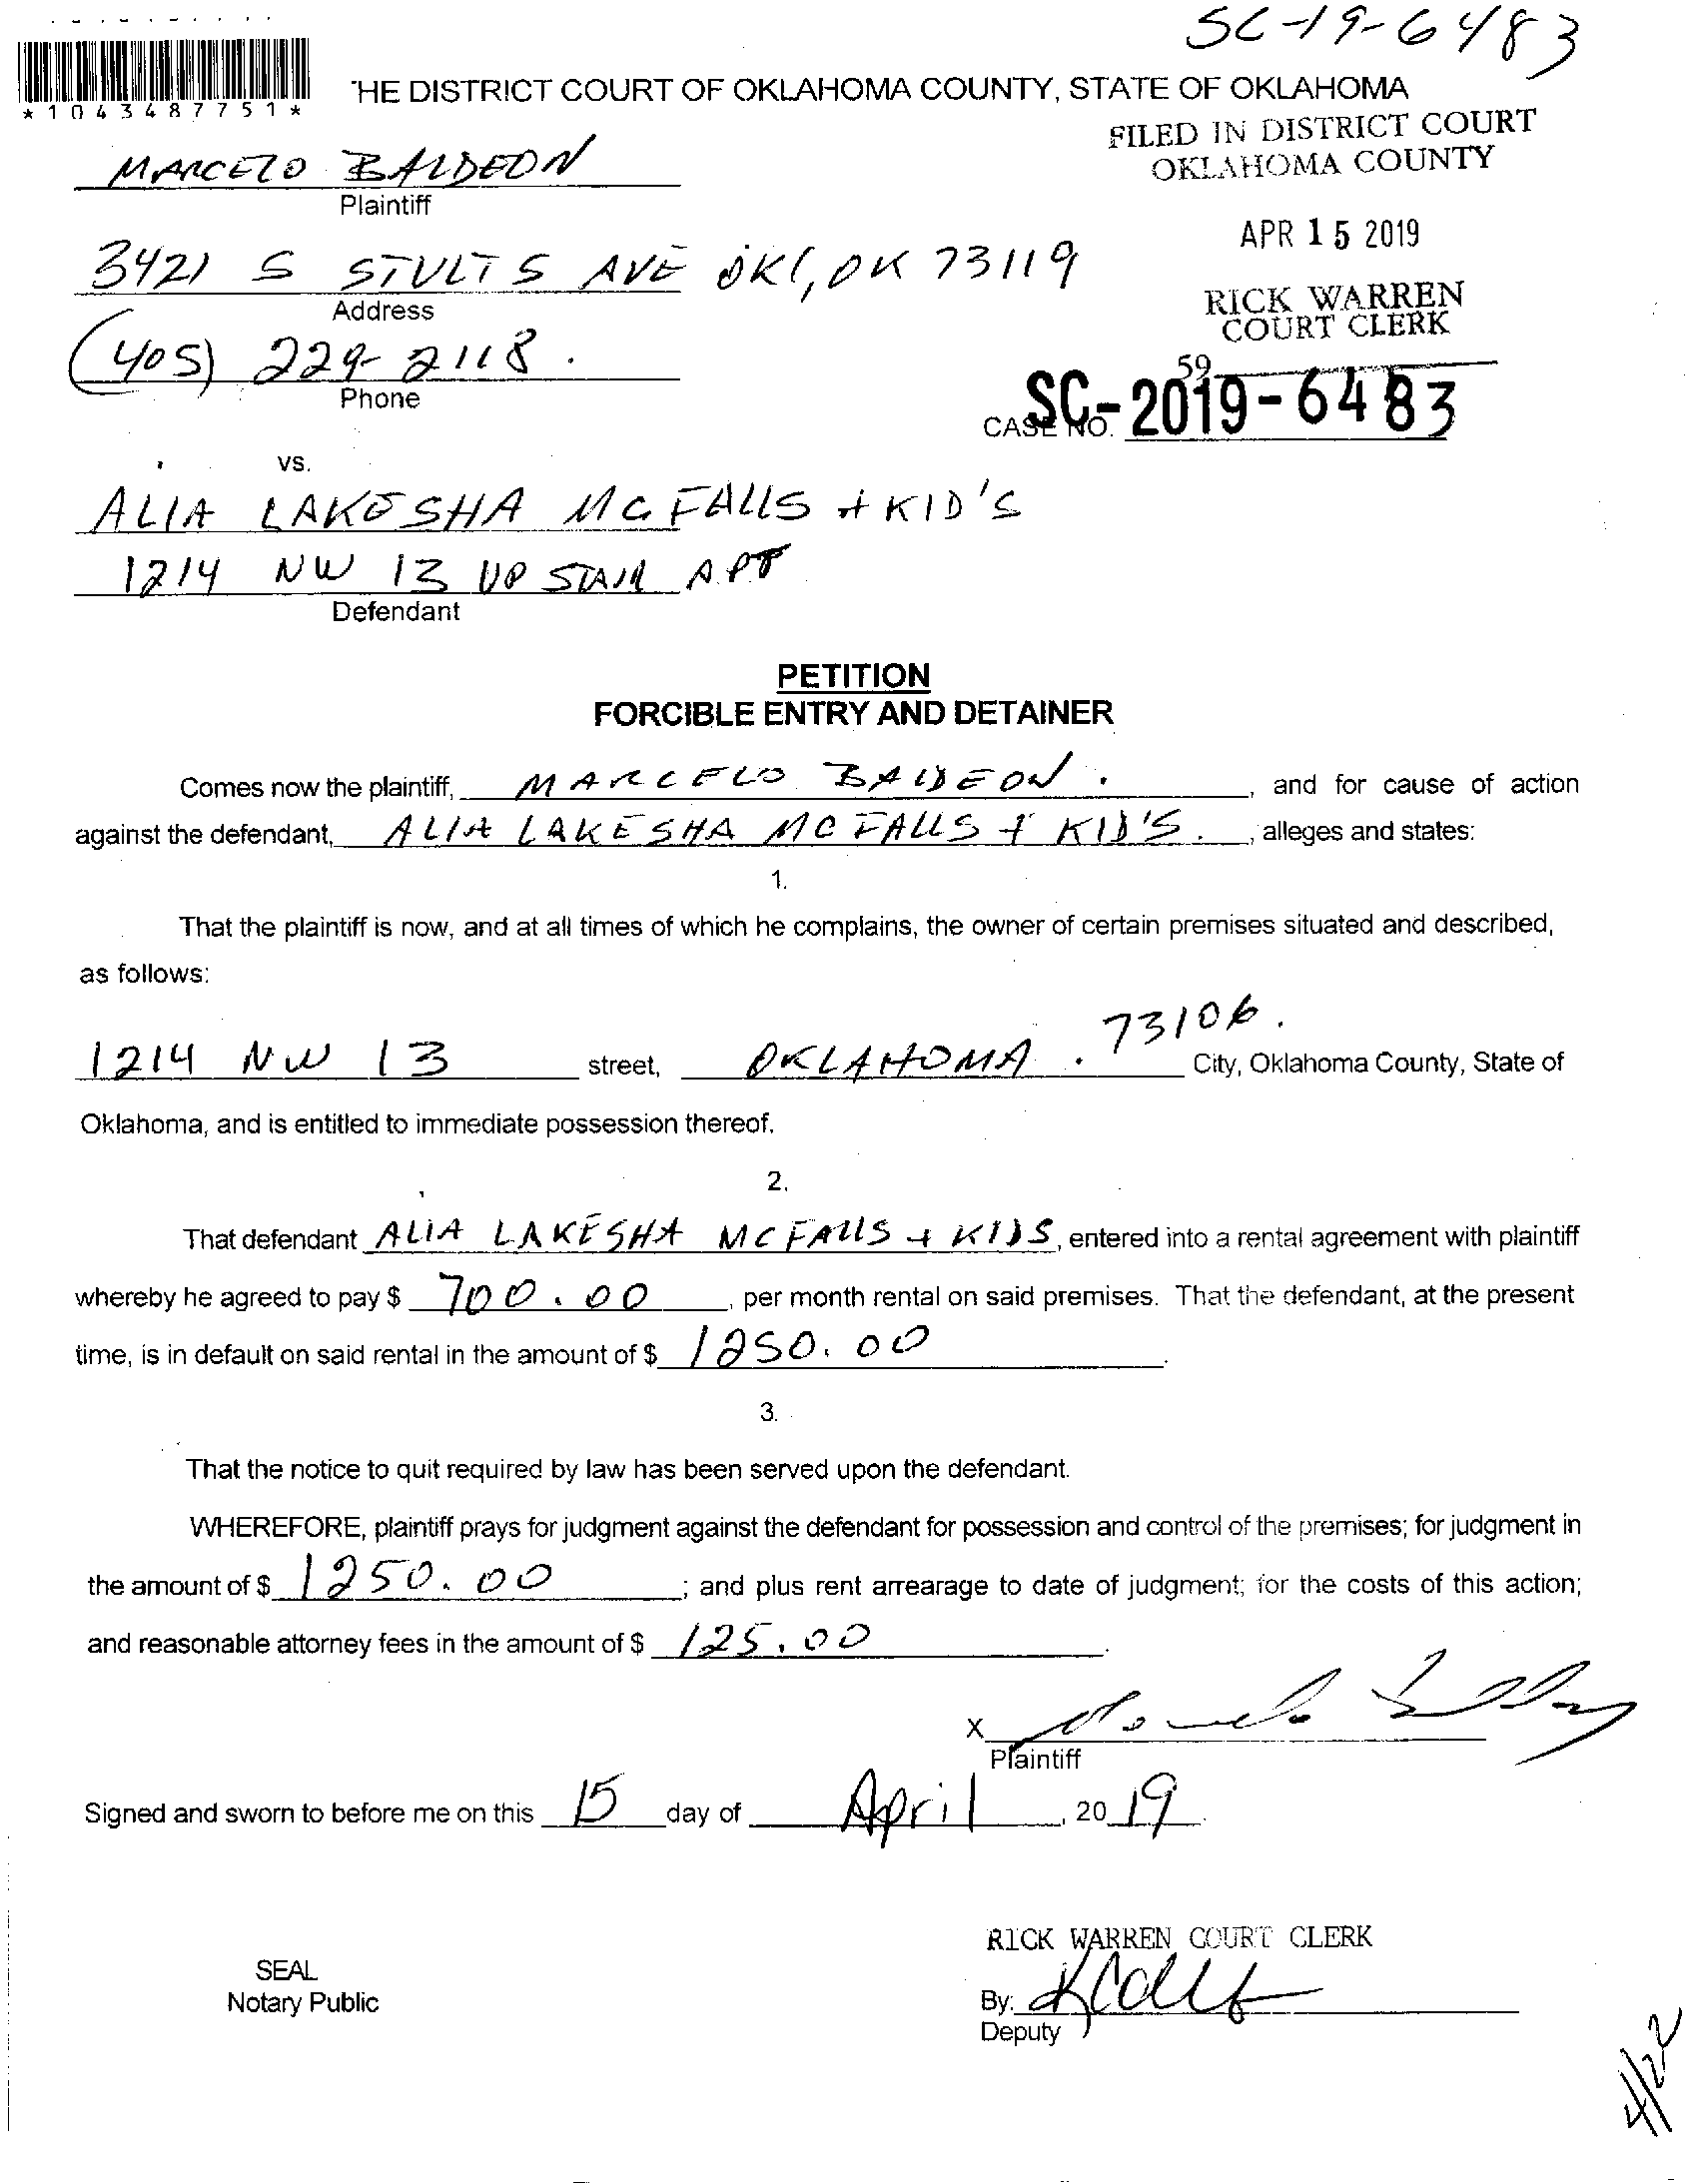 SC-19-6483
*1043487751*
'HE DISTRICT COURT OF OKLAHOMA COUNTY, STATE OF OKLAHOMA
FILED IN DISTRICT COURT
OKLAHOMA COUNTY
MARCELO BALDEON
Plaintiff
APR 15 2019
3421 S STULTS AVE OKC, OK 73119
Address
RICK WARREN
COURT CLERK
(405) 229-2118.
Phone
59
CASE NO. SC-2019-6483
vs.
ALIA LAKESHA MCFALLS + KID'S
1214 NW 13 UP STAIR APT
Defendant
PETITION
FORCIBLE ENTRY AND DETAINER
Comes now the plaintiff, MARCELO BALDEON. , and for cause of action
against the defendant, ALIA LAKESHA MCFALLS + KID'S. , alleges and states:
1.
That the plaintiff is now, and at all times of which he complains, the owner of certain premises situated and described,
as follows:
1214 NW 13 street, OKLAHOMA. 73106. City, Oklahoma County, State of
Oklahoma, and is entitled to immediate possession thereof.
2.
That defendant ALIA LAKESHA MCFALLS + KIDS, entered into a rental agreement with plaintiff
whereby he agreed to pay $ 700.00 , per month rental on said premises. That the defendant, at the present
time, is in default on said rental in the amount of $ 1250.00 .
3.
That the notice to quit required by law has been served upon the defendant.
WHEREFORE, plaintiff prays for judgment against the defendant for possession and control of the premises; for judgment in
the amount of $ 1250.00 ; and plus rent arrearage to date of judgment; for the costs of this action;
and reasonable attorney fees in the amount of $ 125.00 .
X
Plaintiff
Signed and sworn to before me on this 15 day of April , 2019.
RICK WARREN COURT CLERK
SEAL
Notary Public
By:
Deputy
4/22